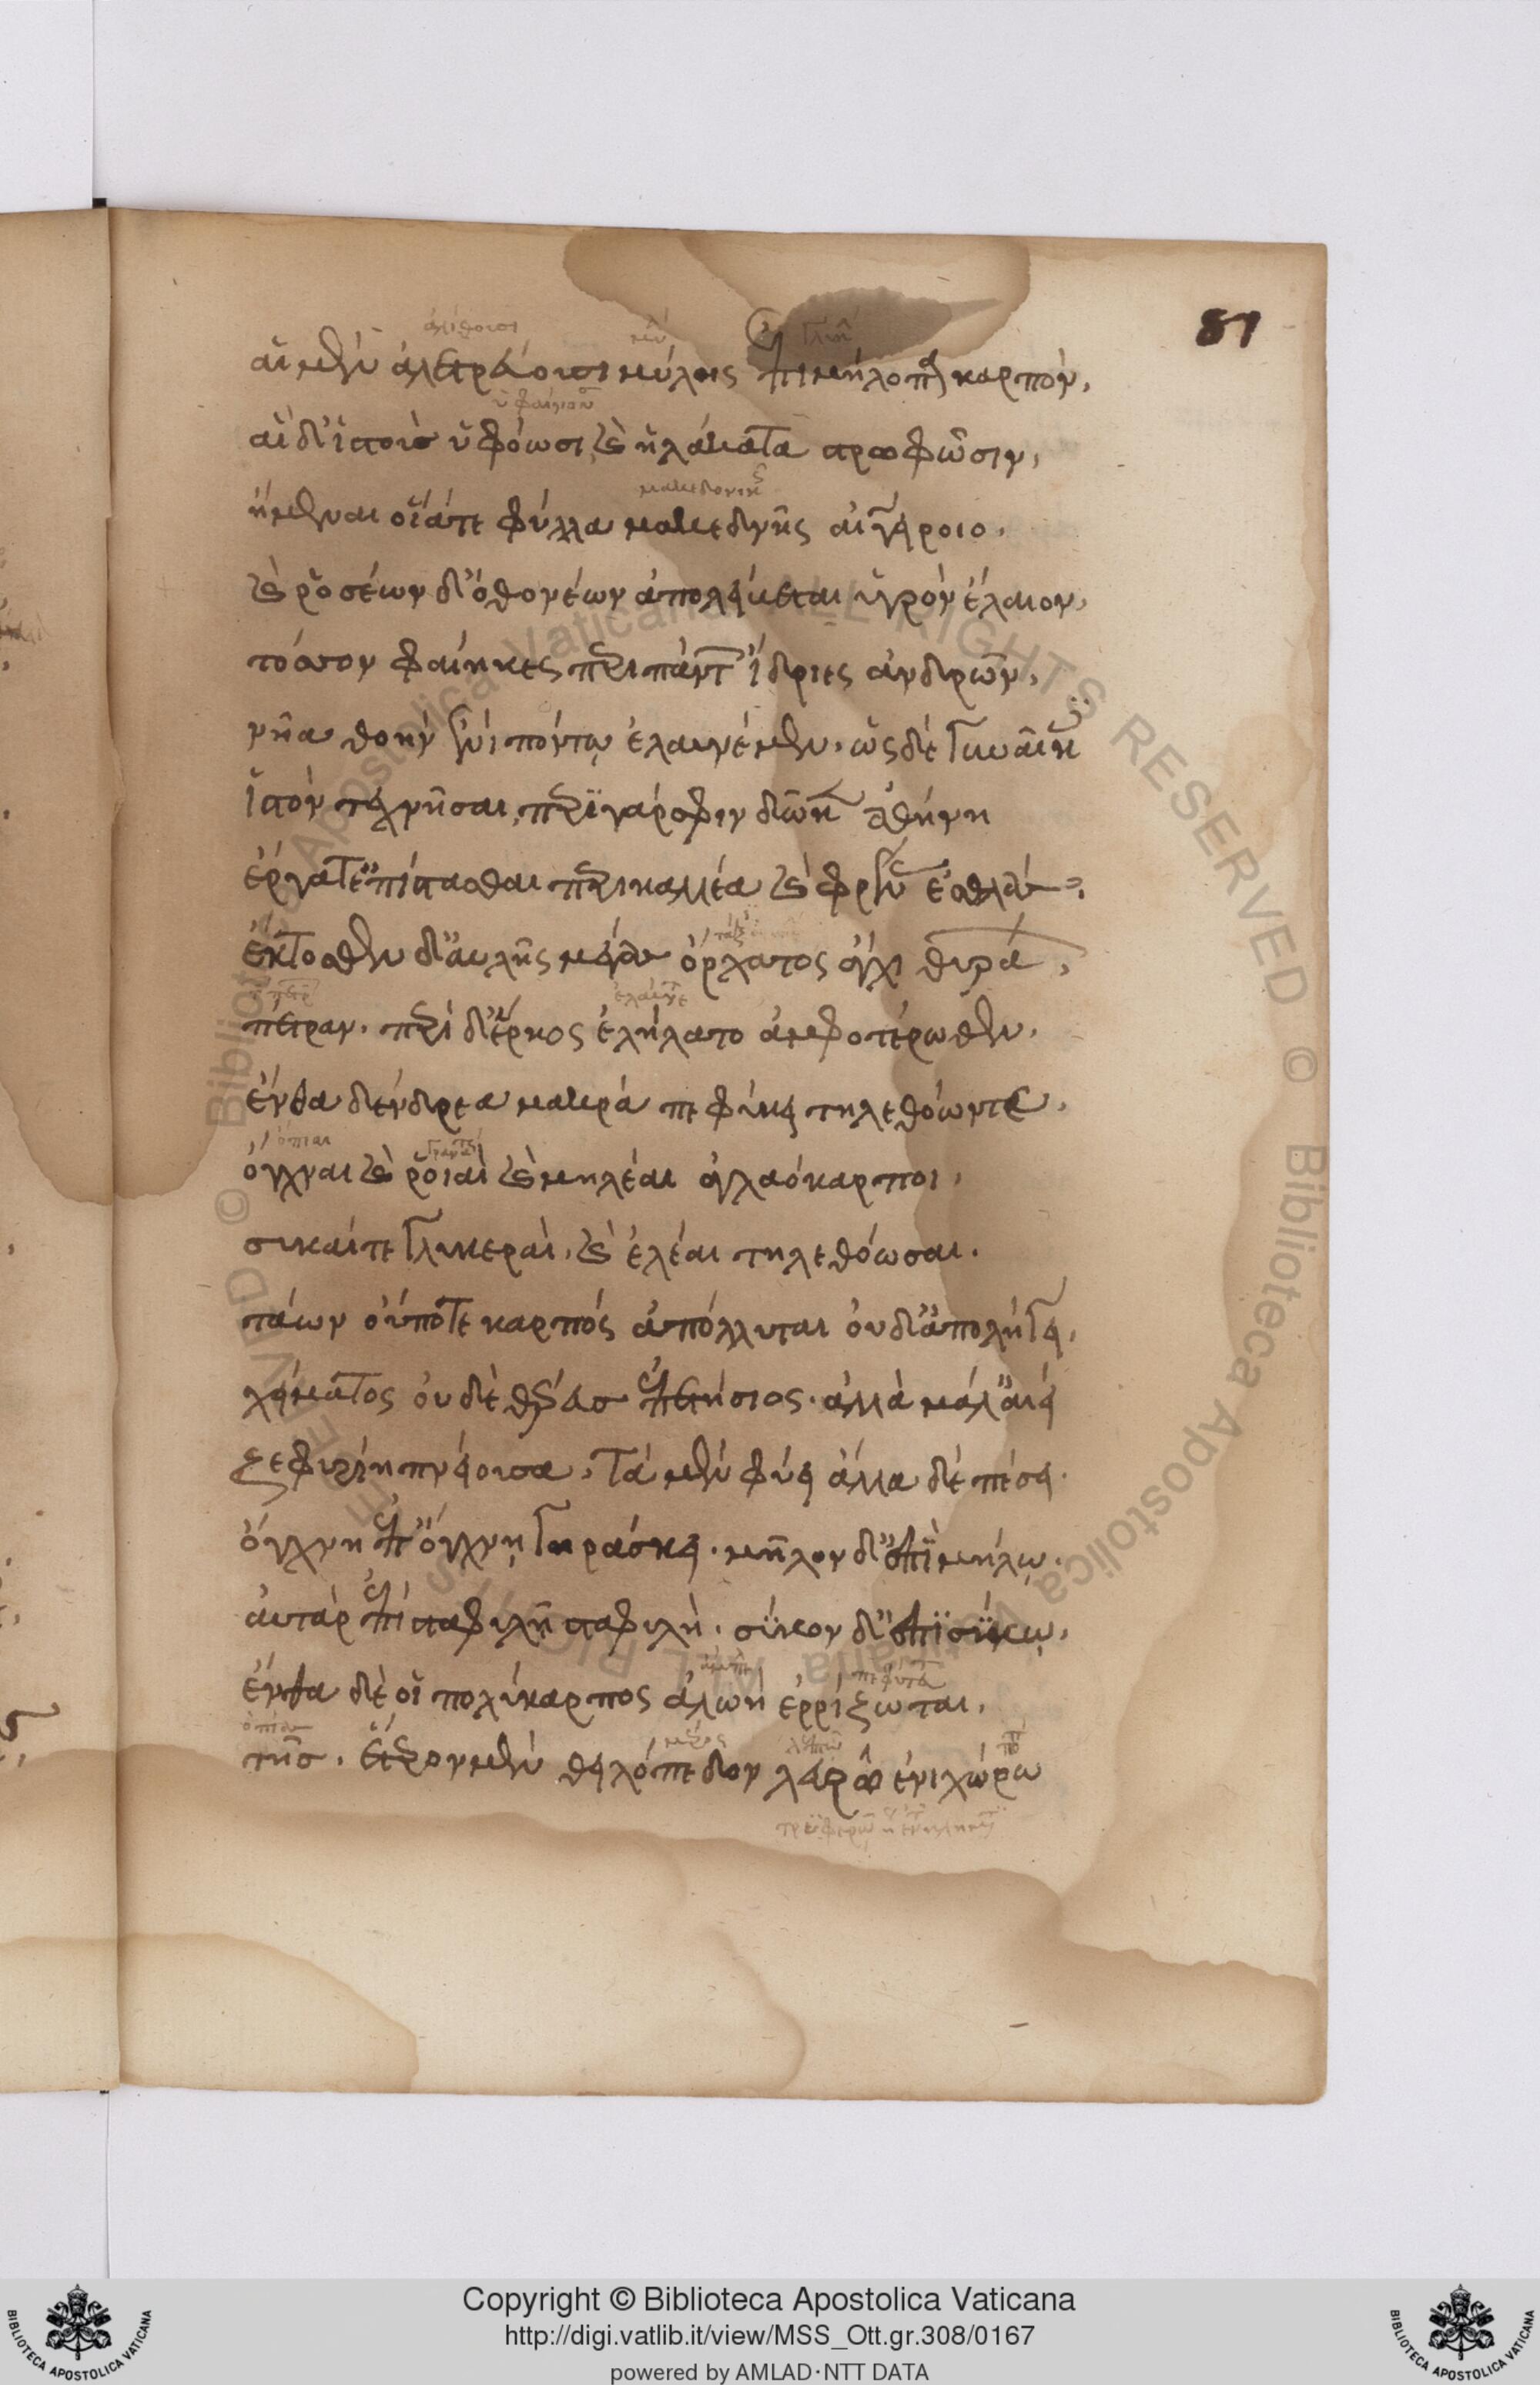 87
αἱ μὲν ἀλετρεύουσι μύλοις ἔπι μήλοπα καρπόν,
αἱ δ' ἱστοὺς ὑφόωσι, καὶ ἠλάκατα στροφῶσιν,
ἥμεναι οἷά τε φύλλα μακεδνῆς αἰγείροιο.
καιροσέων δ' ὀθονέων ἀπολείβεται ὑγρὸν ἔλαιον,
τόσσον φαίηκες περὶ πάντων ἴδριες ἀνδρῶν,
νῆα θοὴν ἐνὶ πόντῳ ἐλαυνέμεν, ὣς δὲ γυναῖκες
ἱστὸν τεχνῆσαι, περὶ γάρ σφιν δῶκεν ἀθήνη
ἔργα τ' ἐπίστασθαι περικαλλέα καὶ φρένας ἐσθλάς.
ἔκτοσθεν δ' αὐλῆς μέγας ὄρχατος ἄγχι θυράων,
τέτραγυος. περὶ δ' ἕρκος ἐλήλατο ἀμφοτέρωθεν.
ἔνθα δένδρεα μακρὰ πεφύκει τηλεθόωντα,
ὄγχναι καὶ ῥοιαὶ καὶ μηλέαι ἀγλαόκαρποι,
συκαῖ τε γλυκεραὶ, καὶ ἐλαῖαι τηλεθόωσαι.
τάων οὔποτε καρπὸς ἀπόλλυται οὐδ' ἀπολήγει,
χείματος οὐδὲ θέρευς ἐπετήσιος. ἀλλὰ μάλ' αἰεὶ
ζεφυρίη πνείουσα, τὰ μὲν φύει ἄλλα δὲ πέσσει.
ὄγχνη ἐπ' ὄγχνῃ γηράσκει. μῆλον δ' ἐπὶ μήλῳ.
αὐτὰρ ἐπὶ σταφυλῇ σταφυλὴ. σῦκον δ' ἐπὶ σύκῳ,
ἔνθα δέ οἱ πολύκαρπος ἀλωὴ ἐρρίζωται,
τῆς. ἕτερον μὲν θειλόπεδον λευρῷ ἐνὶ χώρῳ
Copyright © Biblioteca Apostolica Vaticana
http://digi.vatlib.it/view/MSS_Ott.gr.308/0167
powered by AMLAD·NTT DATA